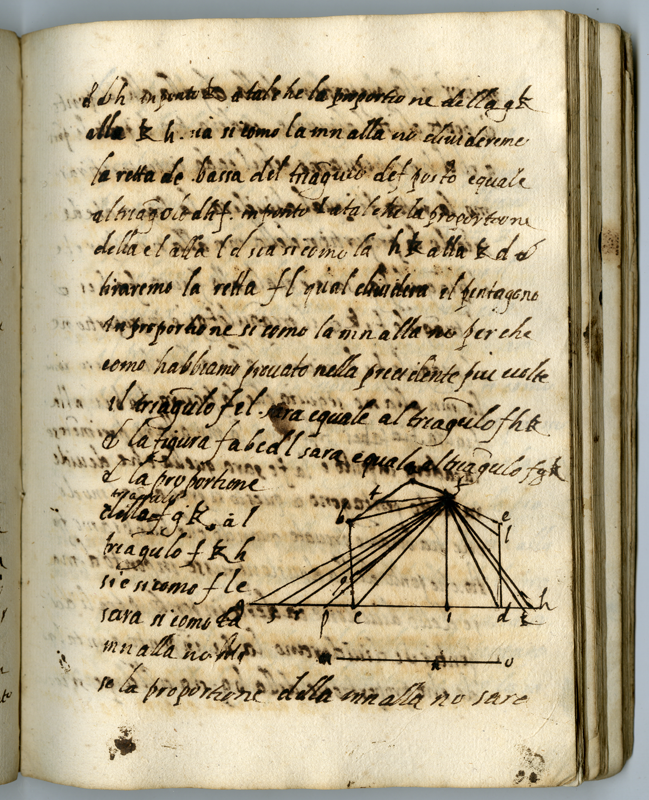 gh in ponto k a tal che la proportione della gk
alla k h. va si como la mn alla no divideremo
la retta de bassa del triāgulo def posto equale
al triāgolo dhf. in ponto l a tal che la proportione
della el alla ld sia si como la hk alla kd &
tiraremo la retta fl qual chiudera el pentagono
in proportione si como la mn alla no per che
como habbiamo provato nella precidente piu volte
il triāgulo fel sara equale al triāgulo fhk
& la figura fabcdl sara equale al triāgulo fgk
& la proportione
triāgulo
della fgk. al
triāgulo fkh
sie si como fle
sara si como la
mn alla no
se la proportione della mn alla no sare
a
t
f
b
e
l
g
s
r
p
c
i
d
k
h
m
n
o